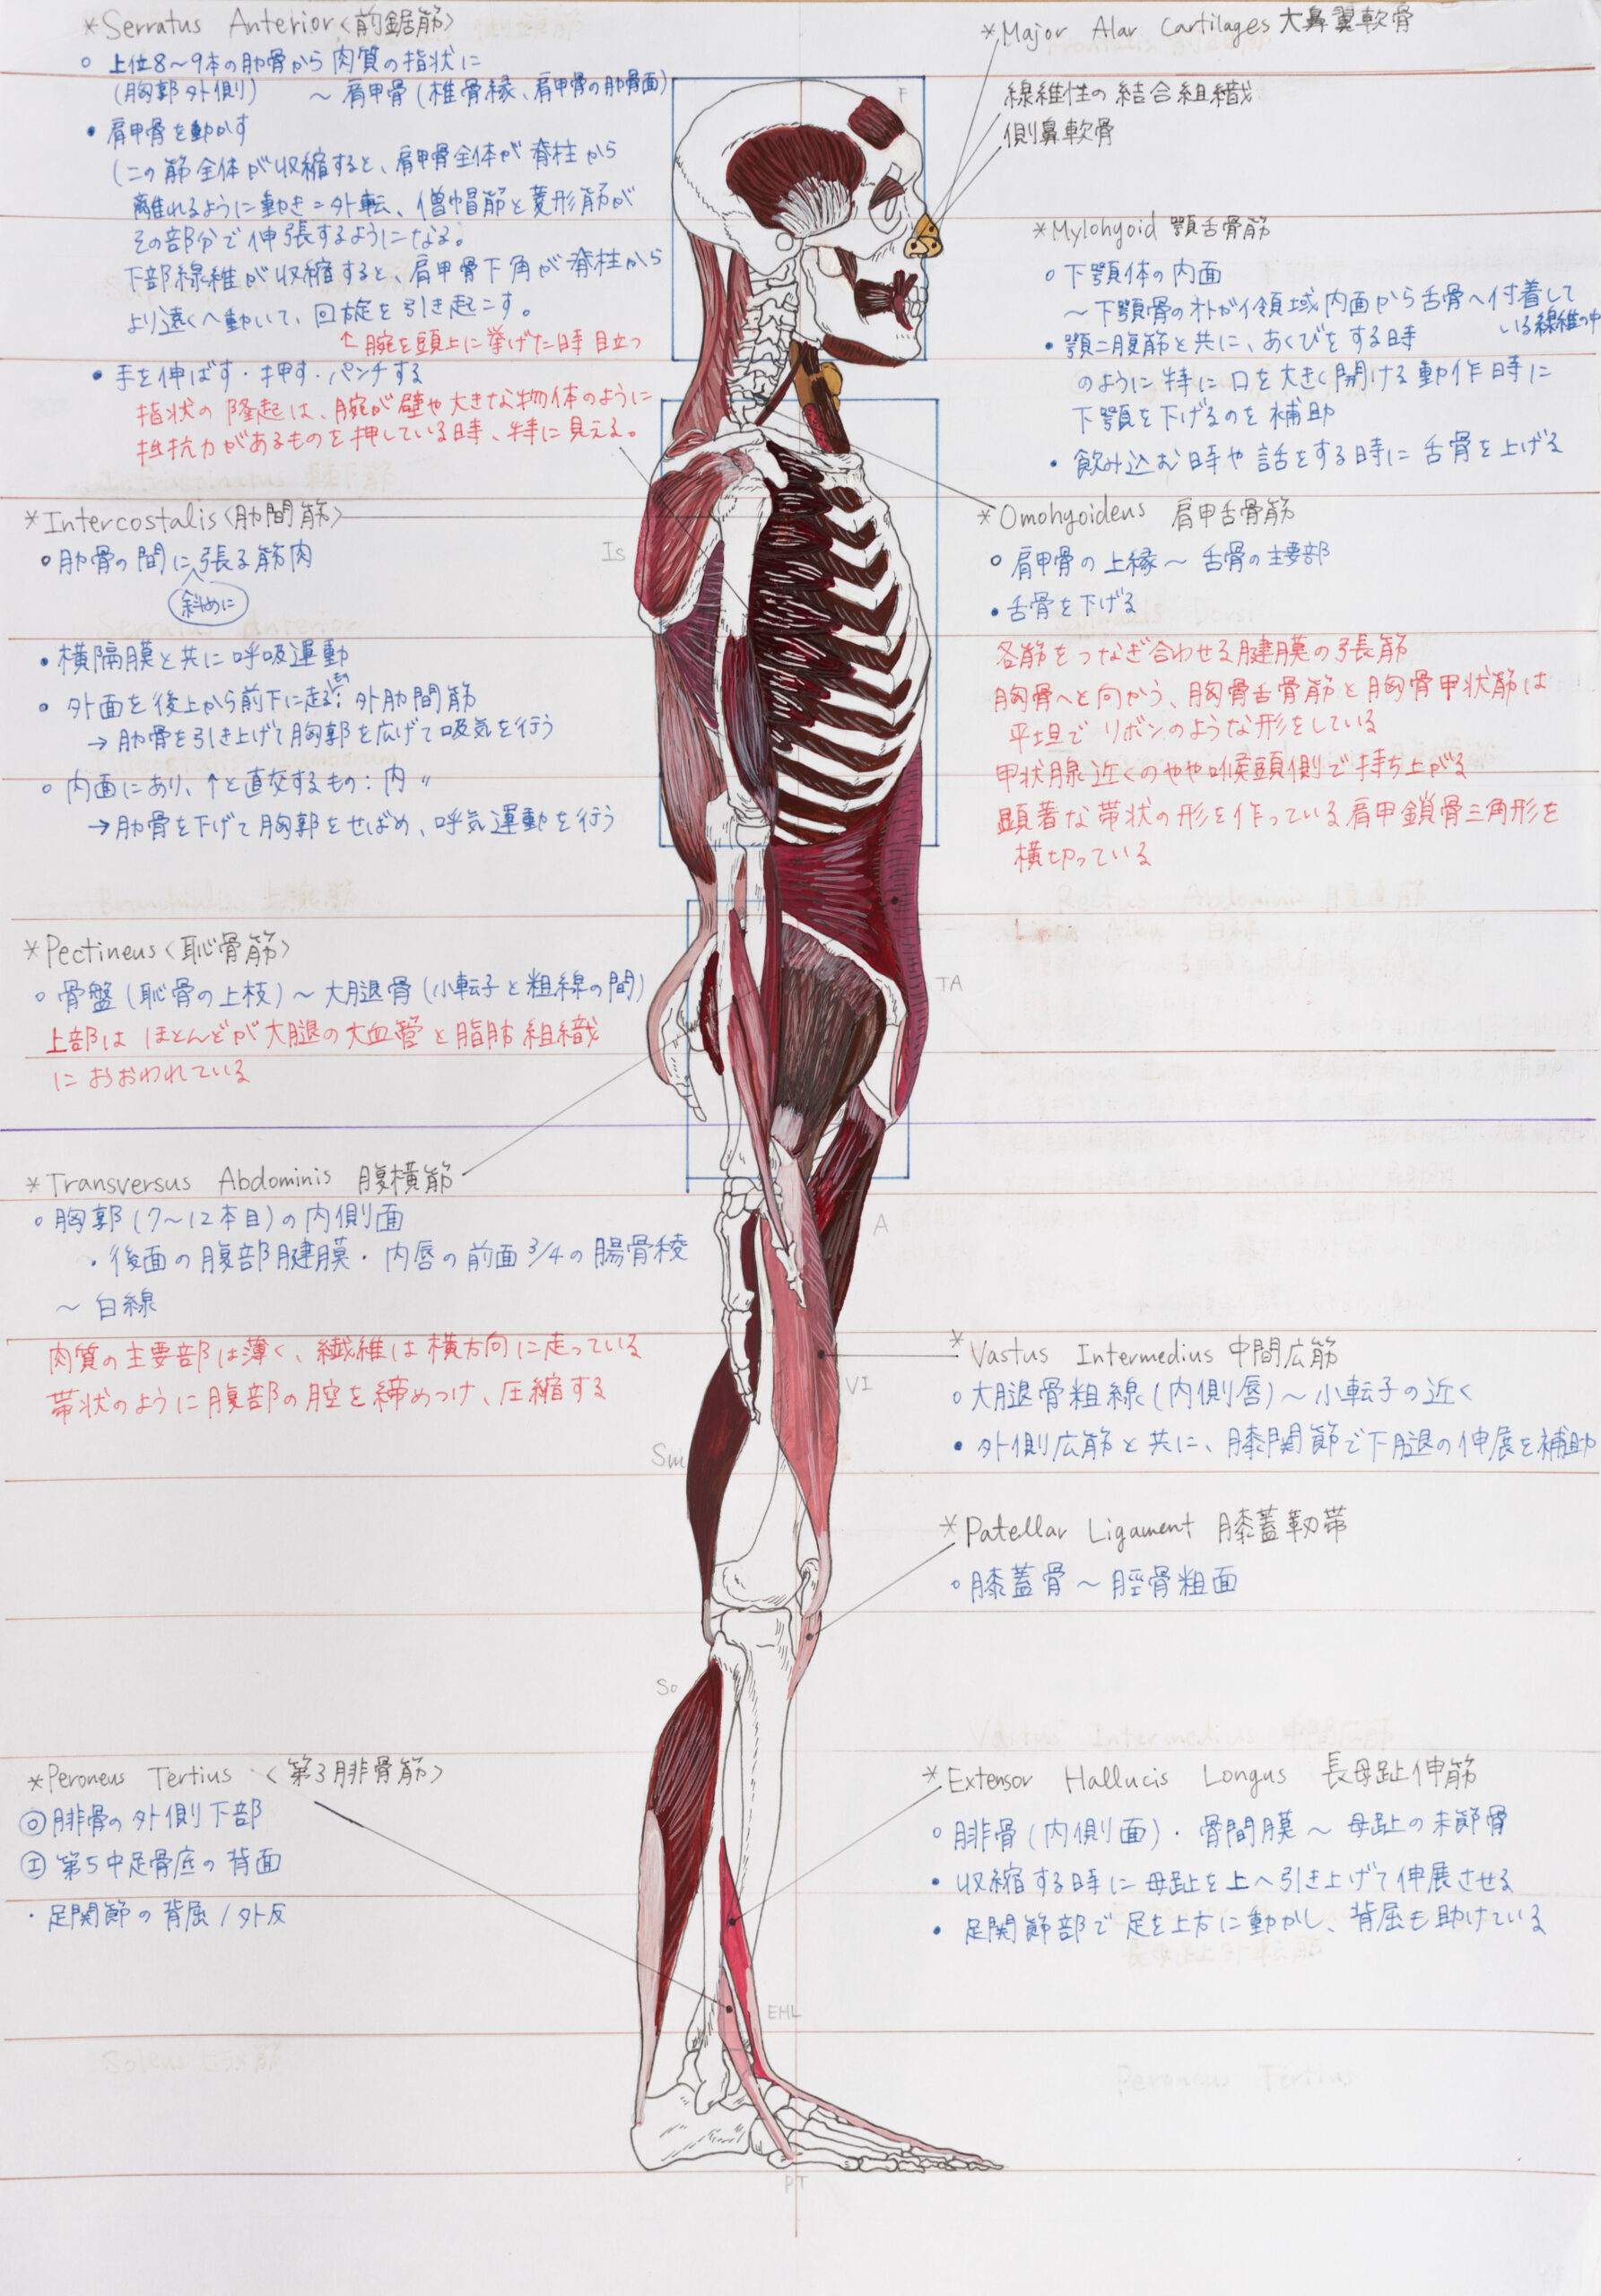 *Serratus Anterior<前鋸筋>
○ 上位8〜9本の肋骨から肉質の指状に
(胸郭外側) 〜 肩甲骨(椎骨縁、肩甲骨の肋骨面)
• 肩甲骨を動かす
(この筋全体が収縮すると、肩甲骨全体が脊柱から
離れるように動き=外転、僧帽筋と菱形筋が
その部分で伸張するようになる。
下部線維が収縮すると、肩甲骨下角が脊柱から
より遠くへ動いて、回旋を引き起こす。
↑腕を頭上に挙げた時目立つ
• 手を伸ばす・押す・パンチする
指状の隆起は、腕が壁や大きな物体のように
抵抗力があるものを押している時、特に見える。
*Intercostalis<肋間筋>
○肋骨の間に張る筋肉
斜めに
• 横隔膜と共に呼吸運動
○ 外面を後上から前下に走る: 外肋間筋
→ 肋骨を引き上げて胸郭を広げて吸気を行う
○ 内面にあり、↑と直交するもの: 内 〃
→肋骨を下げて胸郭をせばめ、呼気運動を行う
*Pectineus<恥骨筋>
○ 骨盤(恥骨の上枝)〜大腿骨(小転子と粗線の間)
上部は ほとんどが大腿の大血管と脂肪組織
におおわれている
*Transversus Abdominis 腹横筋
○ 胸郭(7〜12本目)の内側面
・後面の腹部腱膜・内唇の前面3/4の腸骨稜
〜 白線
肉質の主要部は薄く、繊維は横方向に走っている
帯状のように腹部の腔を締めつけ、圧縮する
*Peroneus Tertius <第3腓骨筋>
Ⓞ 腓骨の外側下部
Ⓘ 第5中足骨底の背面
・足関節の背屈/外反
*Major Alar Cartilages 大鼻翼軟骨
線維性の結合組織
側鼻軟骨
*Mylohyoid 顎舌骨筋
○ 下顎体の内面
〜下顎骨のオトガイ領域内面から舌骨へ付着して
いる線維の中
• 顎二腹筋と共に、あくびをする時
のように特に口を大きく開ける動作時に
下顎を下げるのを補助
• 飲み込む時や話をする時に舌骨を上げる
*Omohyoideus 肩甲舌骨筋
○ 肩甲骨の上縁〜舌骨の主要部
• 舌骨を下げる
各筋をつなぎ合わせる腱膜の張筋
胸骨へと向かう、胸骨舌骨筋と胸骨甲状筋は
平坦でリボンのような形をしている
甲状腺近くのやや喉頭側で持ち上がる
顕著な帯状の形を作っている肩甲鎖骨三角形を
横切っている
*Vastus Intermedius 中間広筋
○ 大腿骨粗線(内側唇)〜小転子の近く
• 外側広筋と共に、膝関節で下腿の伸展を補助
*Patellar Ligament 膝蓋靭帯
○ 膝蓋骨〜脛骨粗面
*Extensor Hallucis Longus 長母趾伸筋
○ 腓骨(内側面)・骨間膜〜母趾の末節骨
• 収縮する時に母趾を上へ引き上げて伸展させる
• 足関節部で足を上方に動かし、背屈も助けている
F
Is
TA
A
VI
Sm
So
EHL
PT